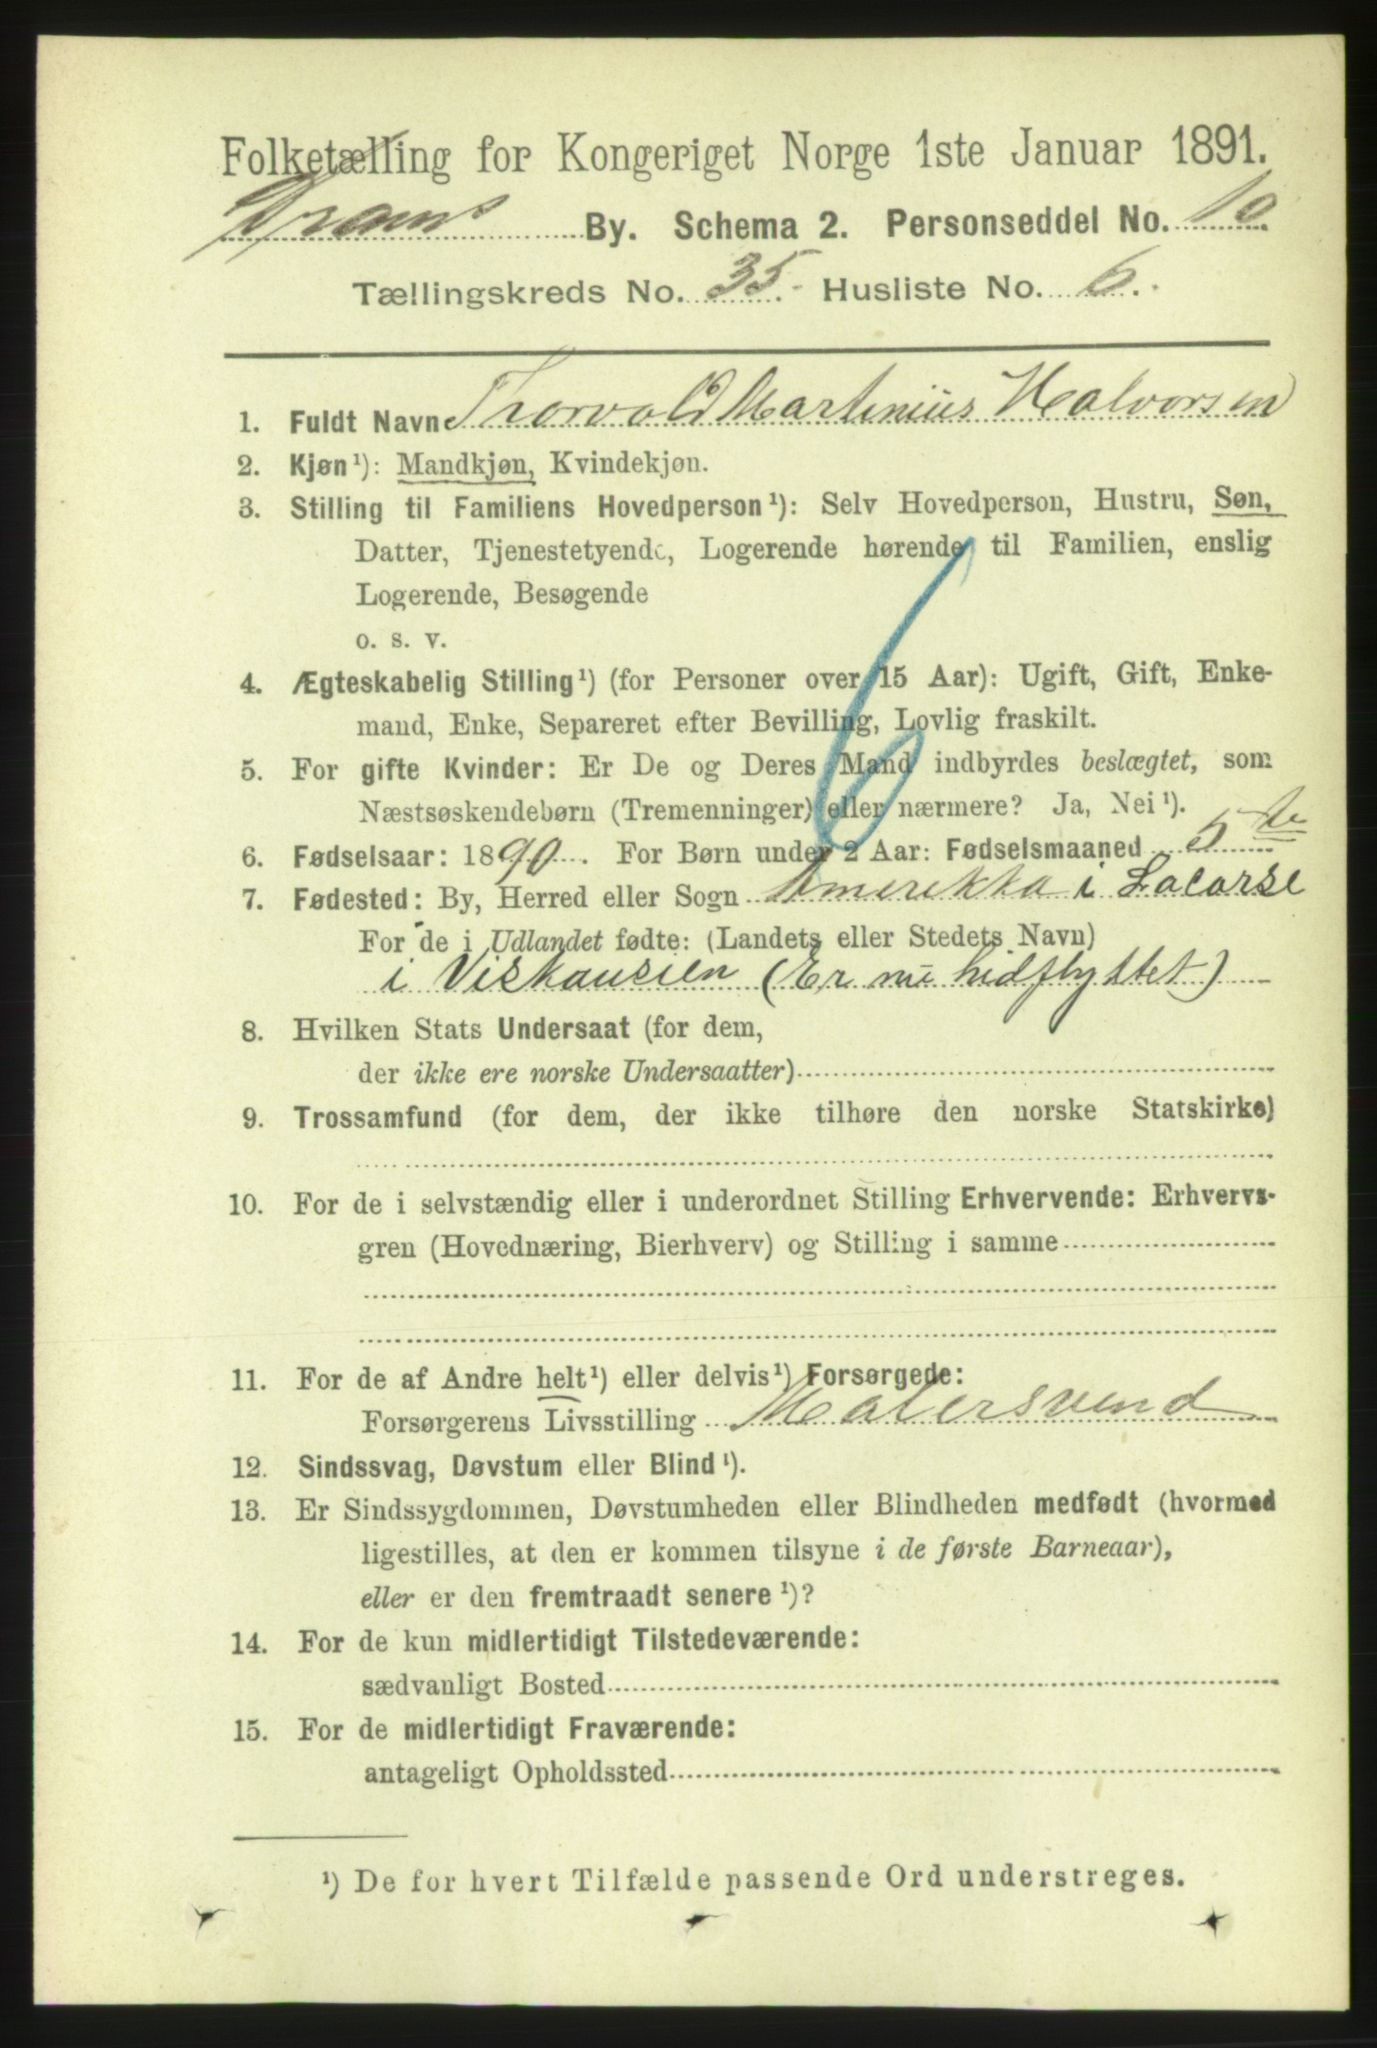 Folketælling for Kongeriget Norge 1ste Januar 1891.
Drams By. Schema 2. Personseddel No. 10
Tællingskreds No. 35. Husliste No. 6.
1. Fuldt Navn Thorvald Martinius Halvorsen
2. Kjøn¹): Mandkjøn, Kvindekjøn.
3. Stilling til Familiens Hovedperson¹): Selv Hovedperson, Hustru, Søn,
Datter, Tjenestetyende, Logerende hørende til Familien, enslig
Logerende, Besøgende
o. s. v.
4. Ægteskabelig Stilling¹) (for Personer over 15 Aar): Ugift, Gift, Enke-
mand, Enke, Separeret efter Bevilling, Lovlig fraskilt.
5. For gifte Kvinder: Er De og Deres Mand indbyrdes beslægtet, som
Næstsøskendebørn (Tremenninger) eller nærmere? Ja, Nei¹).
6. Fødselsaar: 1890. For Børn under 2 Aar: Fødselsmaaned 5te
7. Fødested: By, Herred eller Sogn Amerekka i Lacorse
For de i Udlandet fødte: (Landets eller Stedets Navn)
i Viskausien (Er nu hidflyttet)
8. Hvilken Stats Undersaat (for dem,
der ikke ere norske Undersaatter)
9. Trossamfund (for dem, der ikke tilhøre den norske Statskirke)
10. For de i selvstændig eller i underordnet Stilling Erhvervende: Erhvervs-
gren (Hovednæring, Bierhverv) og Stilling i samme
11. For de af Andre helt¹) eller delvis¹) Forsørgede:
Forsørgerens Livsstilling Malersvend
12. Sindssvag, Døvstum eller Blind¹).
13. Er Sindssygdommen, Døvstumheden eller Blindheden medfødt (hvormed
ligestilles, at den er kommen tilsyne i de første Barneaar),
eller er den fremtraadt senere¹)?
14. For de kun midlertidigt Tilstedeværende:
sædvanligt Bosted
15. For de midlertidigt Fraværende:
antageligt Opholdssted
¹) De for hvert Tilfælde passende Ord understreges.